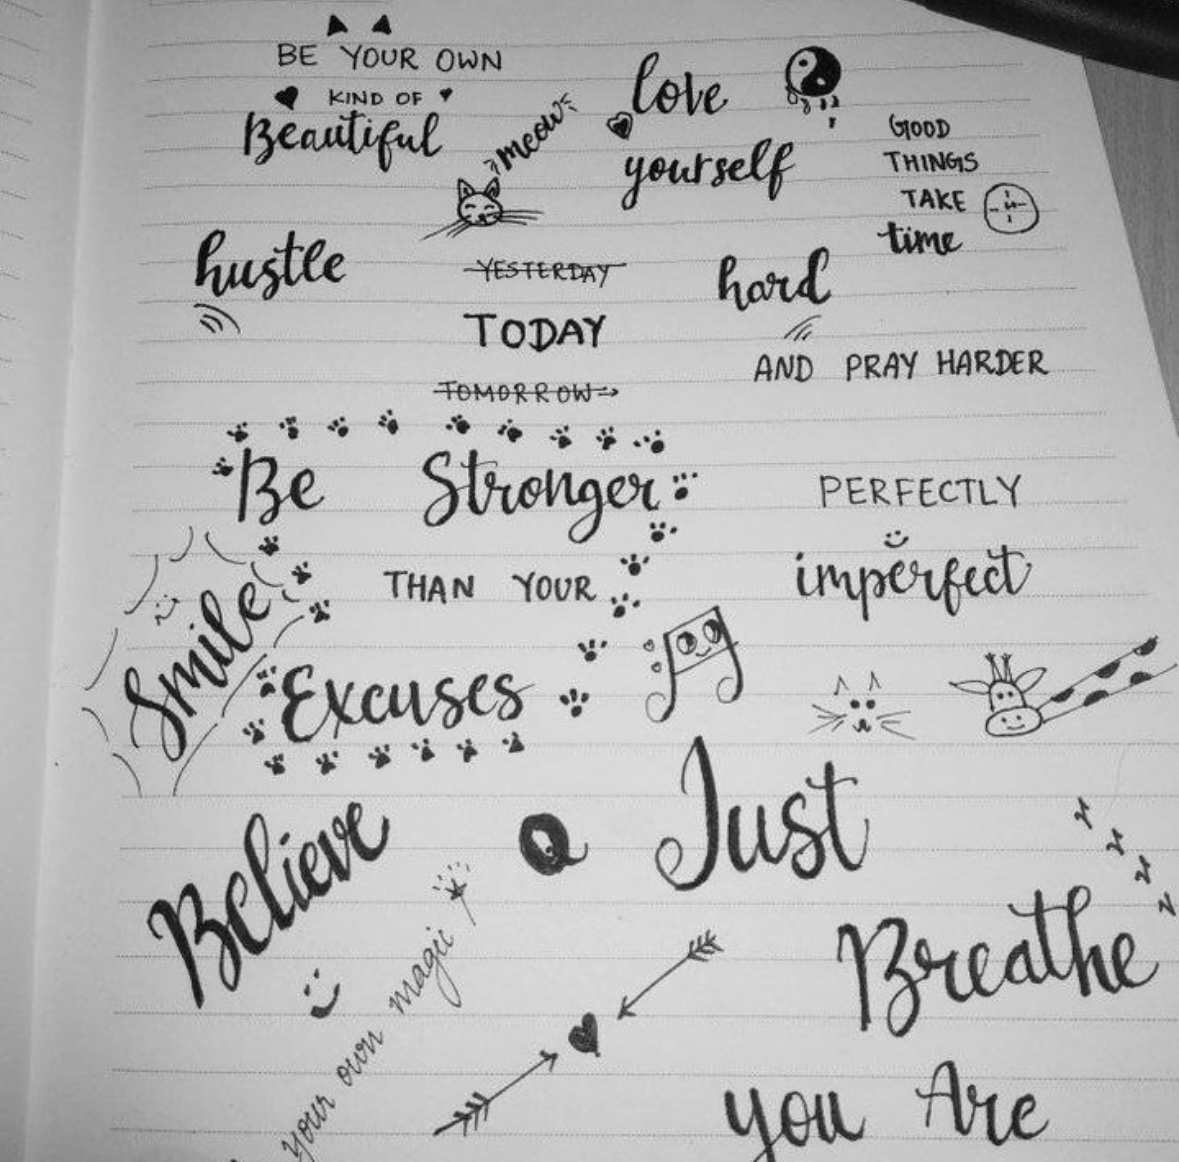 BE YOUR OWN
KIND OF
Beautiful
meow
love
yourself
GOOD
THINGS
TAKE
time
hustle
YESTERDAY
TODAY
TOMORROW
hard
AND PRAY HARDER
Be Stronger
THAN YOUR
Excuses
Smile
PERFECTLY
imperfect
Believe
your own magic
Just
Breathe
you Are